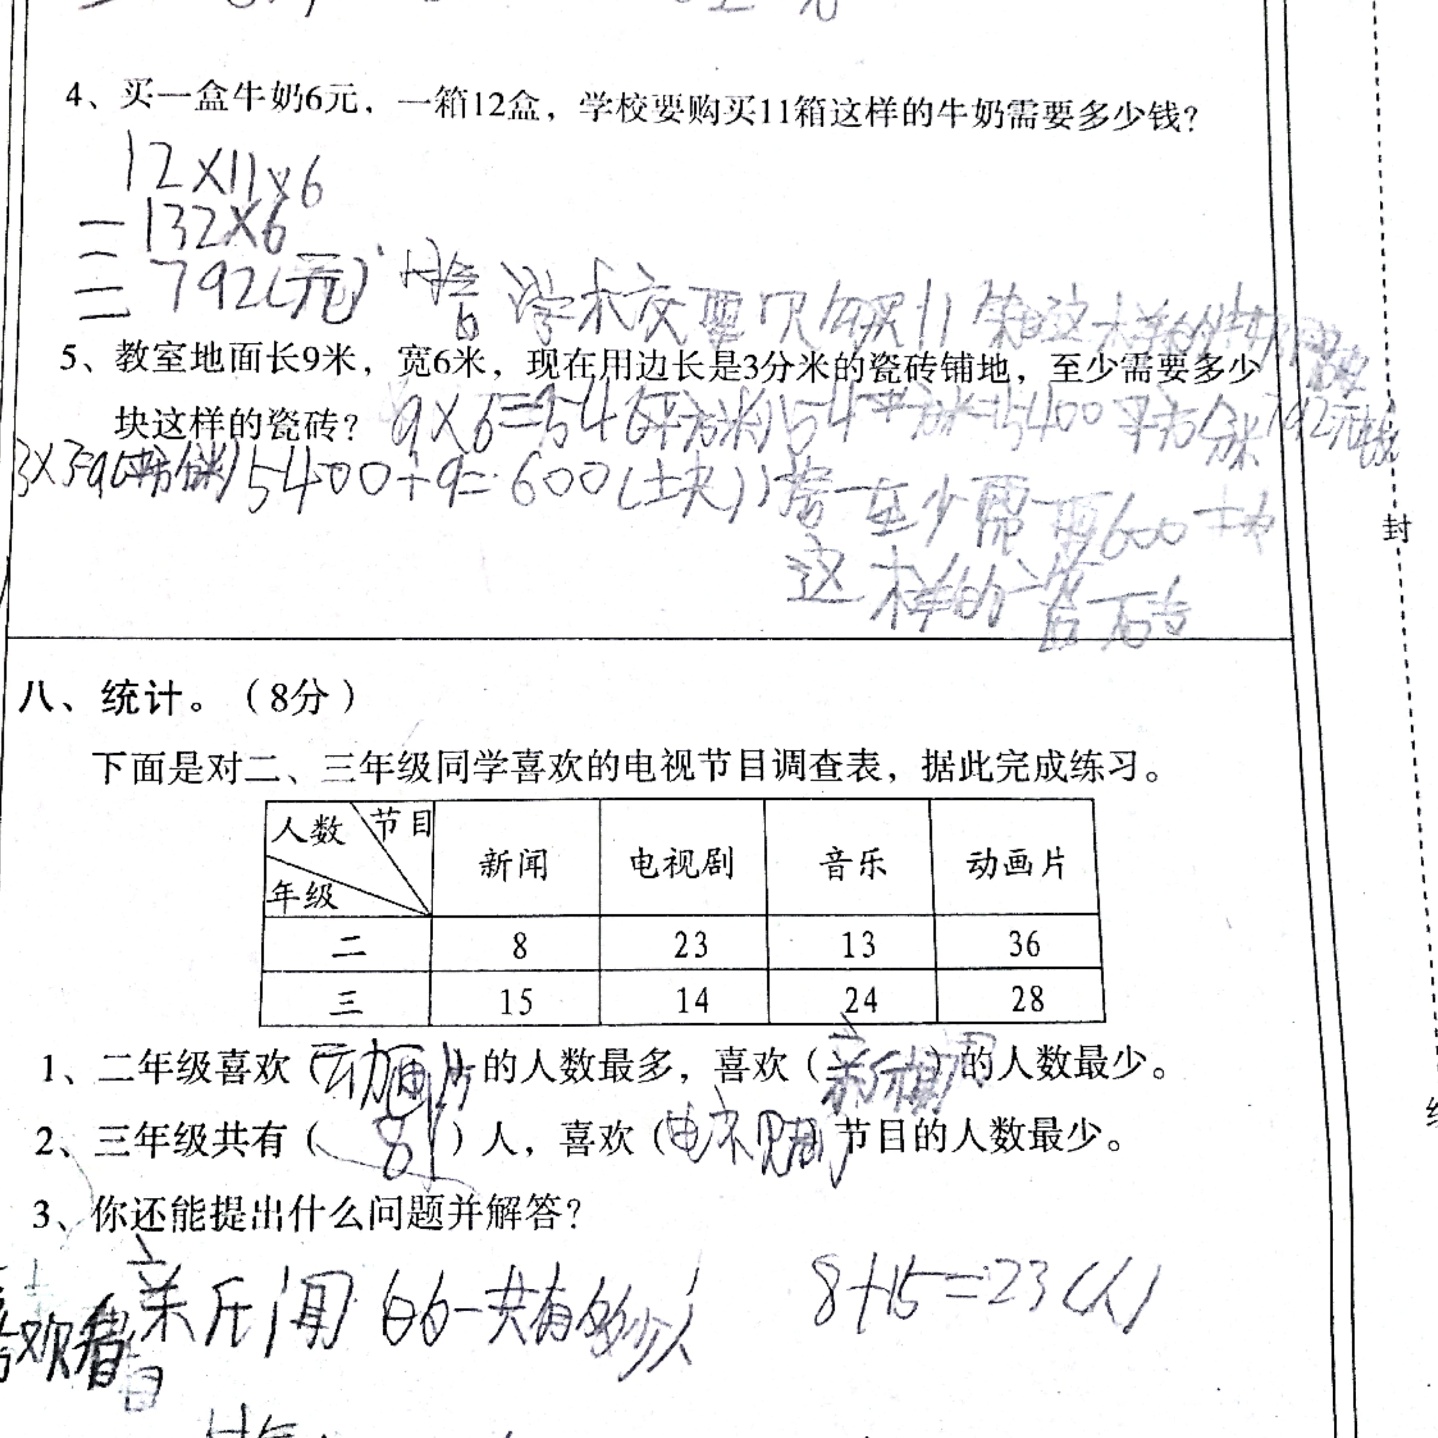 4、买一盒牛奶6元，一箱12盒，学校要购买11箱这样的牛奶需要多少钱？
12×11×6
=132×6
=792(元)
答 学校要购买11箱这样的牛奶需要792元钱
5、教室地面长9米，宽6米，现在用边长是3分米的瓷砖铺地，至少需要多少
块这样的瓷砖？ 9×6=54(平方米) 54平方米=5400平方分米
3×3=9(平方分米) 5400÷9=600(块) 答 至少需要600块
这样的瓷砖
封
八、统计。（8分）
下面是对二、三年级同学喜欢的电视节目调查表，据此完成练习。
人数 节目 年级 新闻 电视剧 音乐 动画片
二 8 23 13 36
三 15 14 24 28
1、二年级喜欢（动画片）的人数最多，喜欢（新闻）的人数最少。
2、三年级共有（81）人，喜欢（电视剧）节目的人数最少。
3、你还能提出什么问题并解答？
喜欢看新闻的一共有多少人 8+15=23(人)